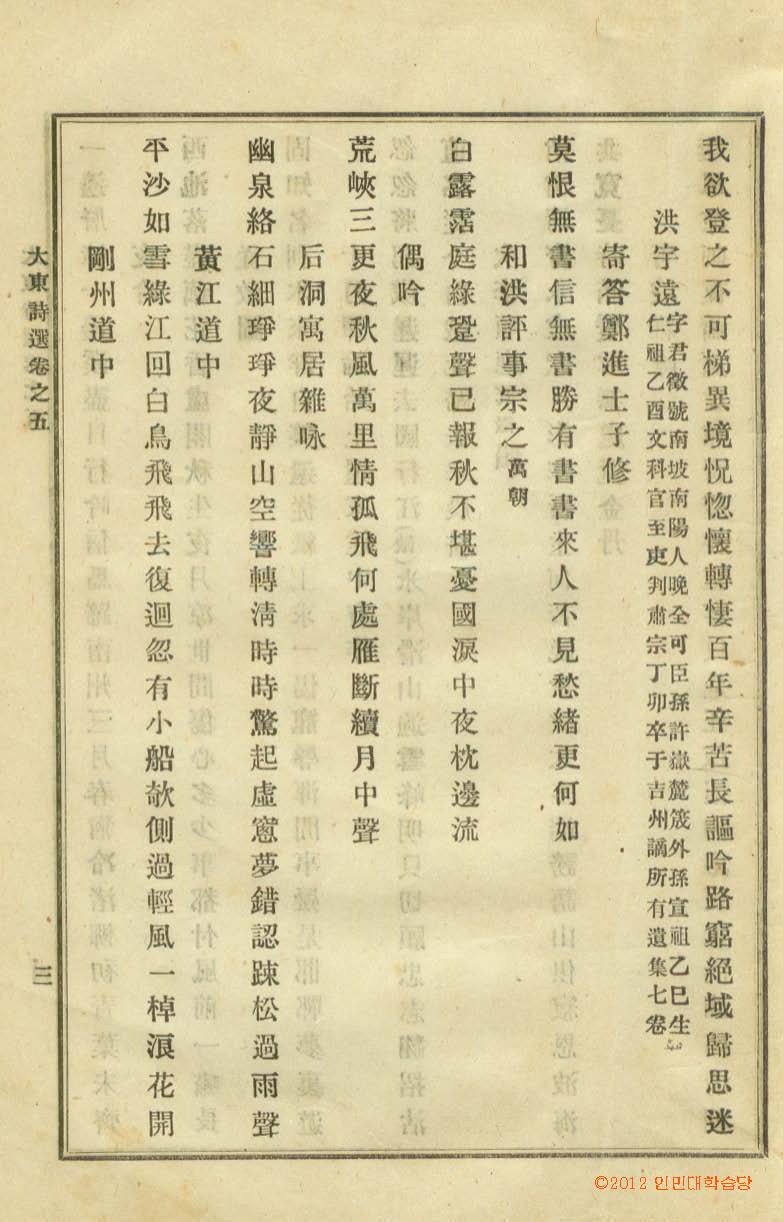 我欲登之不可梯異境怳惚懷轉悽百年辛苦長謳吟路窮絕域歸思迷
洪宇遠
字君徵號南坡南陽人晩全可臣孫許嶽麓筬外孫宣祖乙巳生
仁祖乙酉文科官至吏判肅宗丁卯卒于吉州謫所有遺集七卷
寄答鄭進士子修
莫恨無書信無書勝有書書來人不見愁緖更何如
和洪評事宗之萬朝
白露霑庭綠蛩聲已報秋不堪憂國淚中夜枕邊流
偶吟
荒峽三更夜秋風萬里情孤飛何處雁斷續月中聲
后洞寓居雜咏
幽泉絡石細琤琤夜靜山空響轉淸時時驚起虛窓夢錯認踈松過雨聲
黃江道中
平沙如雪綠江回白鳥飛飛去復迴忽有小船欹側過輕風一棹浪花開
剛州道中
大東詩選卷之五
三
©2012 인민대학습당